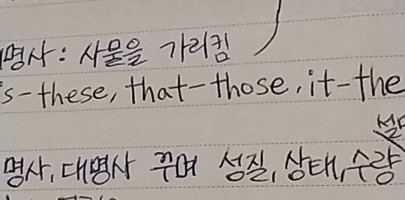 명사: 사물을 가리킴
s-these, that-those, it-the
명사, 대명사 꾸며 성질, 상태, 수량